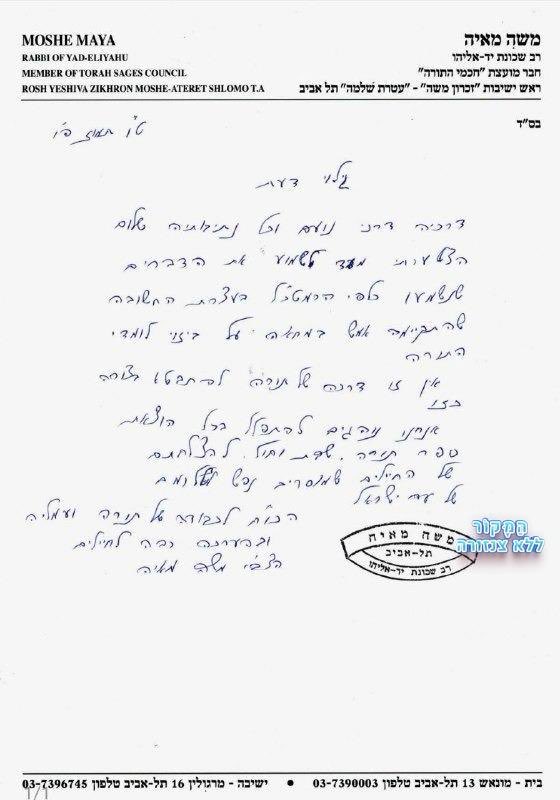 MOSHE MAYA
RABBI OF YAD-ELIYAHU
MEMBER OF TORAH SAGES COUNCIL
ROSH YESHIVA ZIKHRON MOSHE-ATERET SHLOMO T.A
משה מאיה
רב שכונת יד-אליהו
חבר מועצת "חכמי התורה"
ראש ישיבות "זכרון משה" - "עטרת שלמה" תל אביב
בס"ד
ט"ו תמוז פ"ו
גילוי דעת
דרכיה דרכי נועם וכל נתיבותיה שלום
הצטערתי מאד לשמוע את הדברים
שנשמעו כלפי הרמטכ"ל בעצרת החשובה
שהתקיימה אמש במחאה על ביזוי לומדי
התורה
אין זו דרכה של תורה להתבטא בצורה
כזו
אנחנו נוהגים להתפלל בכל הוצאת
ספר תורה, שבת וחול, להצלחתם
של החיילים שמוסרים נפש לשלומם
של עם ישראל
הכו"ח לכבודה של תורה ועמליה
ובהערכה רבה לחיילים
הצב"י משה מאיה
משה מאיה
תל-אביב
רב שכונת יד-אליהו
המקור
ללא צנזורה
בית - מונאש 13 תל-אביב טלפון 03-7390003 • ישיבה - מרגולין 16 תל-אביב טלפון 03-7396745
1/1